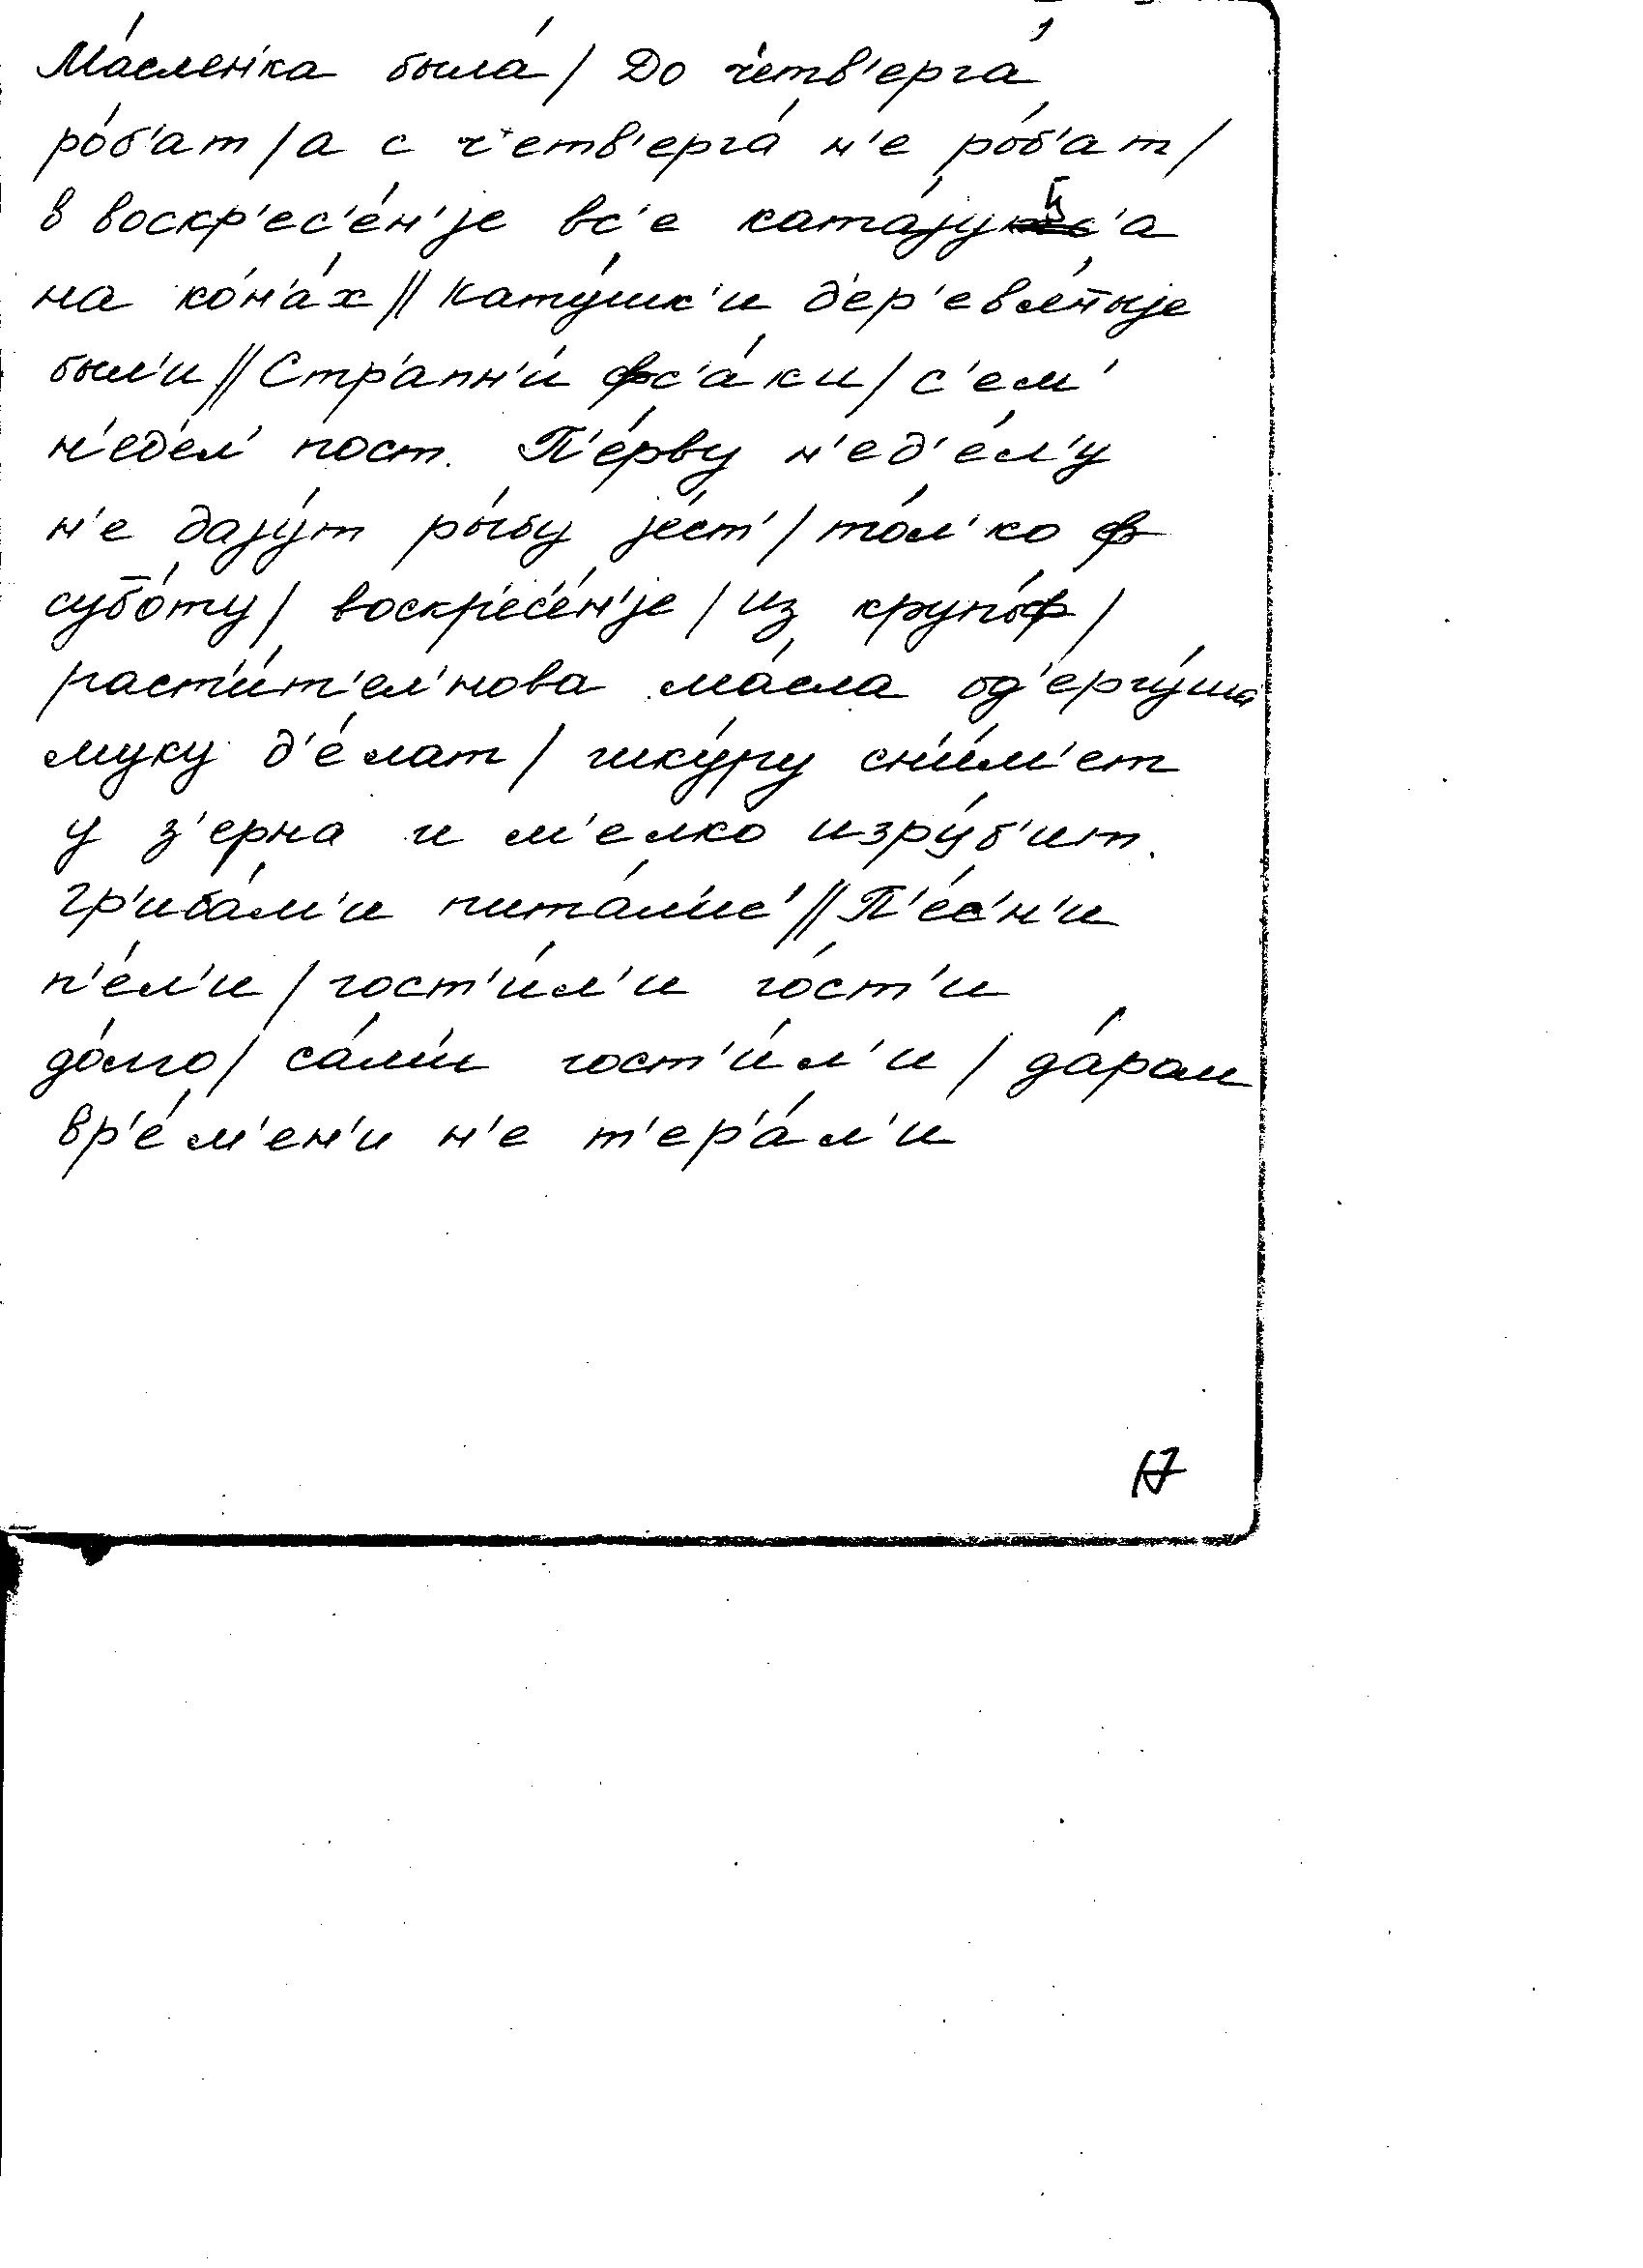 Ма́слен'ка была́ / До ч'етв'ерга́
ро́б'ат / а с ч'етв'ерга́ н'е ро́б'ат /
в воскр'ес'е́н'jе вс'е ката́jуц'а
на ко́н'а́х // Кату́шк'и д'ер'евя́ныjе
был'и // Стр'апн'и́ фс'а́ки / с'ем'
н'ед'ел' пост. П'е́рву н'ед'е́л'у
н'е даjу́т ры́бу jе́ст' / то́л'ко ф
суббо́ту / воскр'ес'е́н'jе / из крупы́ф /
раст'и́т'ел'нова ма́сла од'ергу́ша
муку д'е́лат / шку́ру сн'и́м'ет
у з'ерна и м'елко изру́б'ит.
Гр'иба́м'и пита́л'ис' // П'е́с'н'и
п'е́л'и / гост'и́л'и го́ст'и
до́лго / са́м'и гост'и́л'и / да́ром
вр'е́м'ен'и н'е т'ер'а́л'и
17